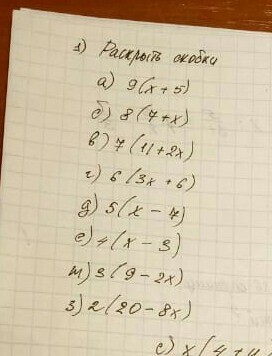 1) Раскрыть скобки
а) 9(x+5)
б) 8(7+x)
в) 7(11+2x)
г) 6(3x+6)
д) 5(x-7)
е) 4(x-3)
ж) 3(9-2x)
з) 2(20-8x)
е) x(4+